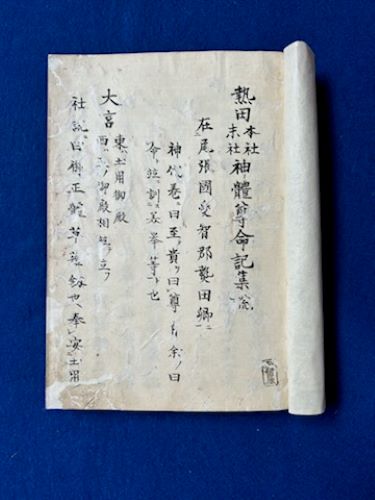 熱田本社末社神體尊命記集 全
在尾張國愛智郡熱田郷ニ
神代巻ニ曰至貴ヲ曰尊ト余ヲ曰
命ト並ニ訓美挙等ト也
大宮 東ハ土用御殿
西ハ 御殿相並立ツ
社説曰御正體草薙剱也奉安土用